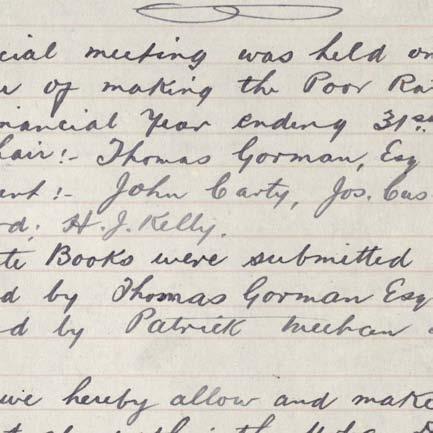 cial meeting was held on
e of making the Poor Ra
inancial Year ending 31st
hair:- Thomas Gorman, Esq
ent:- John Carty, Jos. Cus
rd; H. J. Kelly.
te Books were submitted
d by Thomas Gorman Esq
d by Patrick Meehan
we hereby allow and make